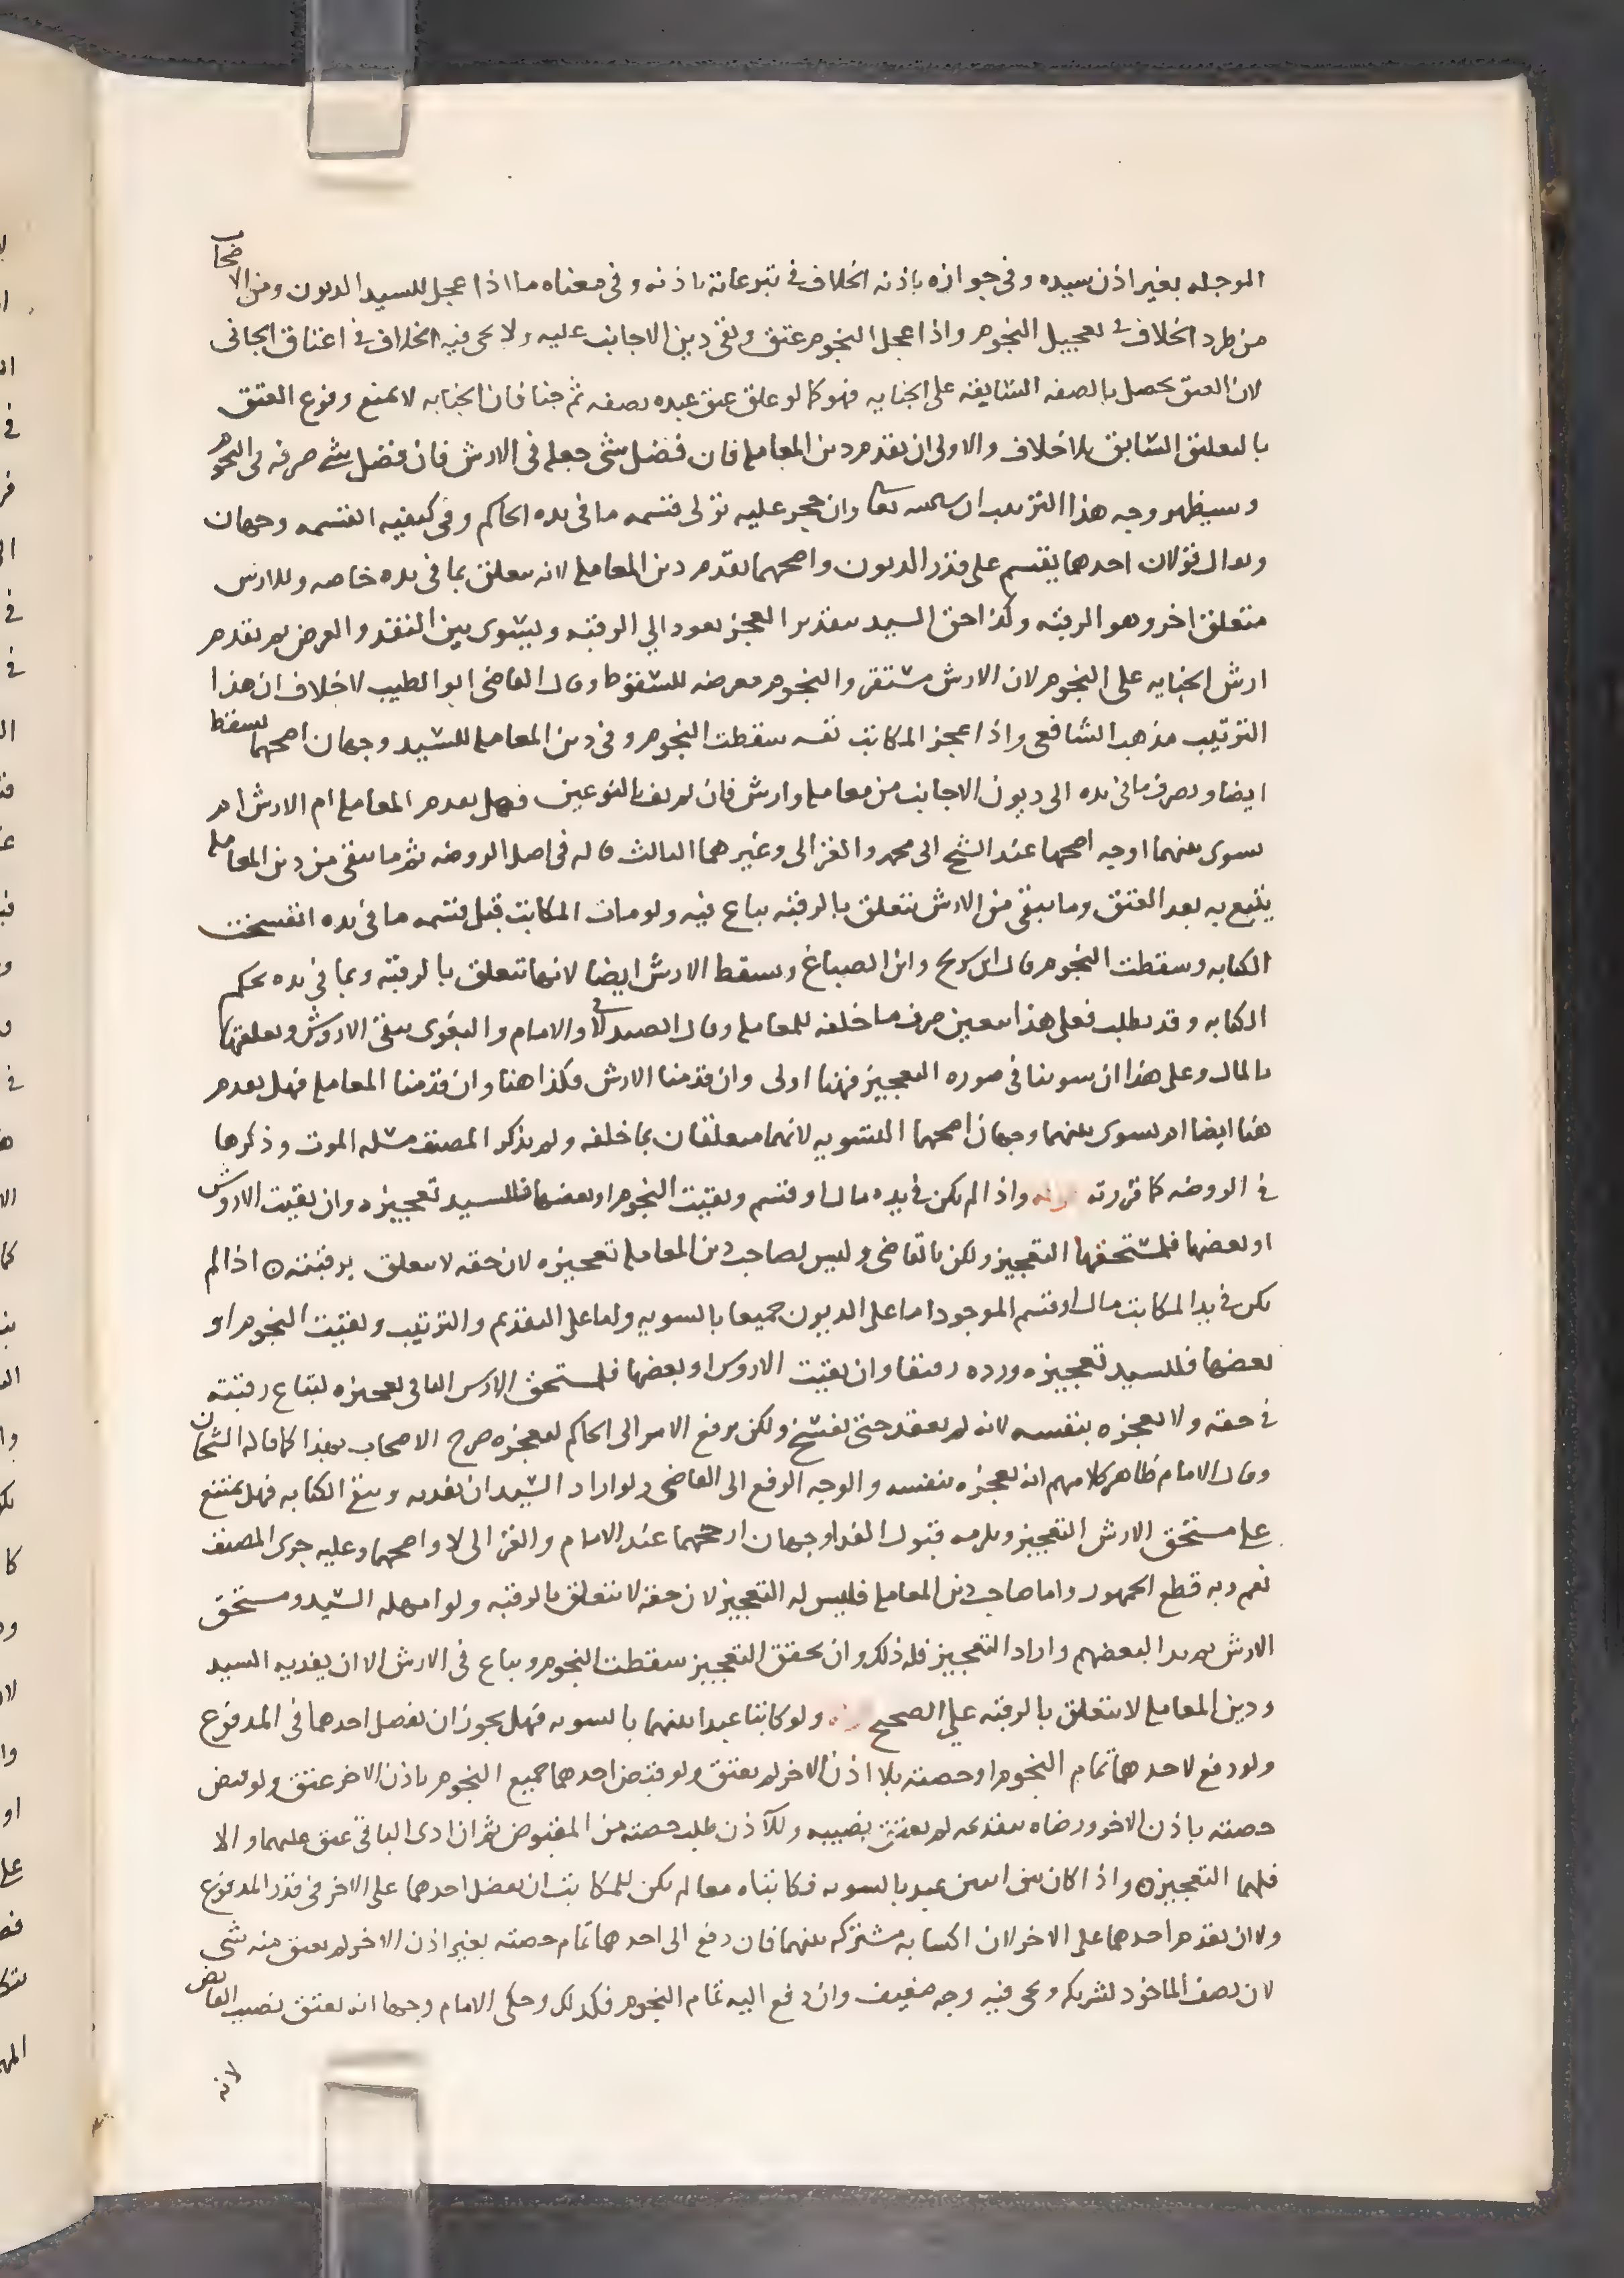 الموجله بغير اذن سيده وفى جوازه باذنه الخلاف فى تبرعاته باذنه وفى معناه ما اذا عجل للسيد الديون ومن الاصحاب
من طرد الخلاف فى تعجيل النجوم واذا عجل النجوم عتق وبقى دين الاجانب عليه ولا يجى فيه الخلاف فى اعتاق الجانى
لان العتق يحصل بالصفه السابقه على الجنايه فهو كما لو علق عتق عبده بصفه ثم جنا فان الجنايه لا تمنع وقوع العتق
بالتعليق السابق بلا خلاف والاولى ان يقدم دين المعامله فان فضل شى جعله فى الارش فان فضل شى صرفه فى النجوم
وسيظهر وجه هذا الترتيب ان شاء الله تعالى وان حجر عليه تولى قسمه ما فى يده الحاكم وفى كيفيه القسمه وجهان
ويقال قولان احدهما يقسم على قدر الديون واصحهما يقدم دين المعامله لانه يتعلق بما فى يده خاصه وللارش
متعلق اخر وهو الرقبه وكذا حق السيد بتقدير العجز يعود الى الرقبه ويسوى بين النقد والعرض ثم يقدم
ارش الجنايه على النجوم لان الارش مستقر والنجوم معرضه للسقوط وقال القاضى ابو الطيب لا خلاف ان هذا
الترتيب مذهب الشافعى واذا عجز المكاتب نفسه سقطت النجوم وفى دين المعامله للسيد وجهان اصحهما يسقط
ايضا ويصرف ما فى يده الى ديون الاجانب من معامله وارش فان لم يف بالنوعين فهل يقدم المعامله ام الارش ام
يسوى بينهما اوجه اصحها عند الشيخ ابى محمد والغزالى وغيرهما الثالث قاله فى اصل الروضه ثم ما يبقى من دين المعامله
يتبع به بعد العتق وما يبقى من الارش يتعلق بالرقبه يباع فيه ولو مات المكاتب قبل قسمه ما فى يده انفسخت
الكتابه وسقطت النجوم قال ابن كج وابن الصباغ ويسقط الارش ايضا لانها تتعلق بالرقبه وبما فى يده بحكم
الكتابه وقد بطلب فعلى هذا يتعين صرف ما خلفه للمعامله وقال الصيدلانى والامام والبغوى يبقى الاروش وتعلقها
بالمال وعلى هذا ان سوينا فى صوره التعجيز فهنا اولى وان قدمنا الارش فكذا هنا وان قدمنا المعامله فهل يقدم
هنا ايضا ام يسوى بينهما وجهان اصحهما التسويه لانهما متعلقان بما خلفه ولم يذكر المصنف مسله الموت وذكرها
فى الروضه كما قررته واذا لم يكن فى يده مال او قسم وبقيت النجوم او بعضها فللسيد تعجيزه وان بقيت الاروش
او بعضها فلمستحقها التعجيز ولكن بالقاضى وليس لصاحب دين المعامله تعجيزه لان حقه لا يتعلق برقبته ٥ اذا لم
يكن فى يد المكاتب مال او قسم الموجود اما على الديون جميعا بالسويه واما على التقديم والترتيب وبقيت النجوم او
بعضها فللسيد تعجيزه ورده رقيقا وان بقيت الاروش او بعضها فلمستحق الارش الباقى تعجيزه ليتباع رقبته
فى حقه ولا يعجزه بنفسه لانه لم يعقد حتى يفسخ ولكن يرفع الامر الى الحاكم ليعجزه صرح الاصحاب بهذا كما قاله الشيخان
وقال الامام ظاهر كلامهم انه يعجزه بنفسه والوجه الرفع الى القاضى ولو اراد السيد ان يفديه ويبقى الكتابه فهل يمتنع
على مستحق الارش التعجيز ويلزمه قبول الفدا وجهان ارجحهما عند الامام والغزالى لا واصحهما وعليه جرى المصنف
نعم وبه قطع الجمهور واما صاحب دين المعامله فليس له التعجيز لان حقه لا يتعلق بالرقبه ولو امهله السيد ومستحق
الارش ثم بدا لبعضهم واراد التعجيز فله ذلك وان تحقق التعجيز سقطت النجوم ويباع فى الارش الا ان يفديه السيد
ودين المعامله لا يتعلق بالرقبه على الصحيح ولو كاتبا عبدا بينهما بالسويه فهل يجوز ان يفضل احدهما فى المدفوع
ولو دفع لاحدهما تمام النجوم او حصته بلا اذن الاخر لم يعتق ولو قبض احدهما جميع النجوم باذن الاخر عتق ولو قبض
حصته باذن الاخر ورضاه بتقديمه لم يعتق نصيبه وللآذن طلب حصته من المقبوض ثم ان ادى الباقى عتق عليهما والا
فلهما التعجيز ٥ واذا كان بين اثنين عبد بالسويه فكاتباه معا لم يكن للمكاتب ان يفضل احدهما على الاخر فى قدر المدفوع
ولا ان يقدم احدهما على الاخر لان اكسابه مشتركه بينهما فان دفع الى احدهما تمام حصته بغير اذن الاخر لم يعتق منه شى
لان نصف الماخوذ لشريكه ويجى فيه وجه ضعيف وان دفع اليه تمام النجوم فكذلك وحكى الامام وجها انه يعتق نصيب القابض
لانه